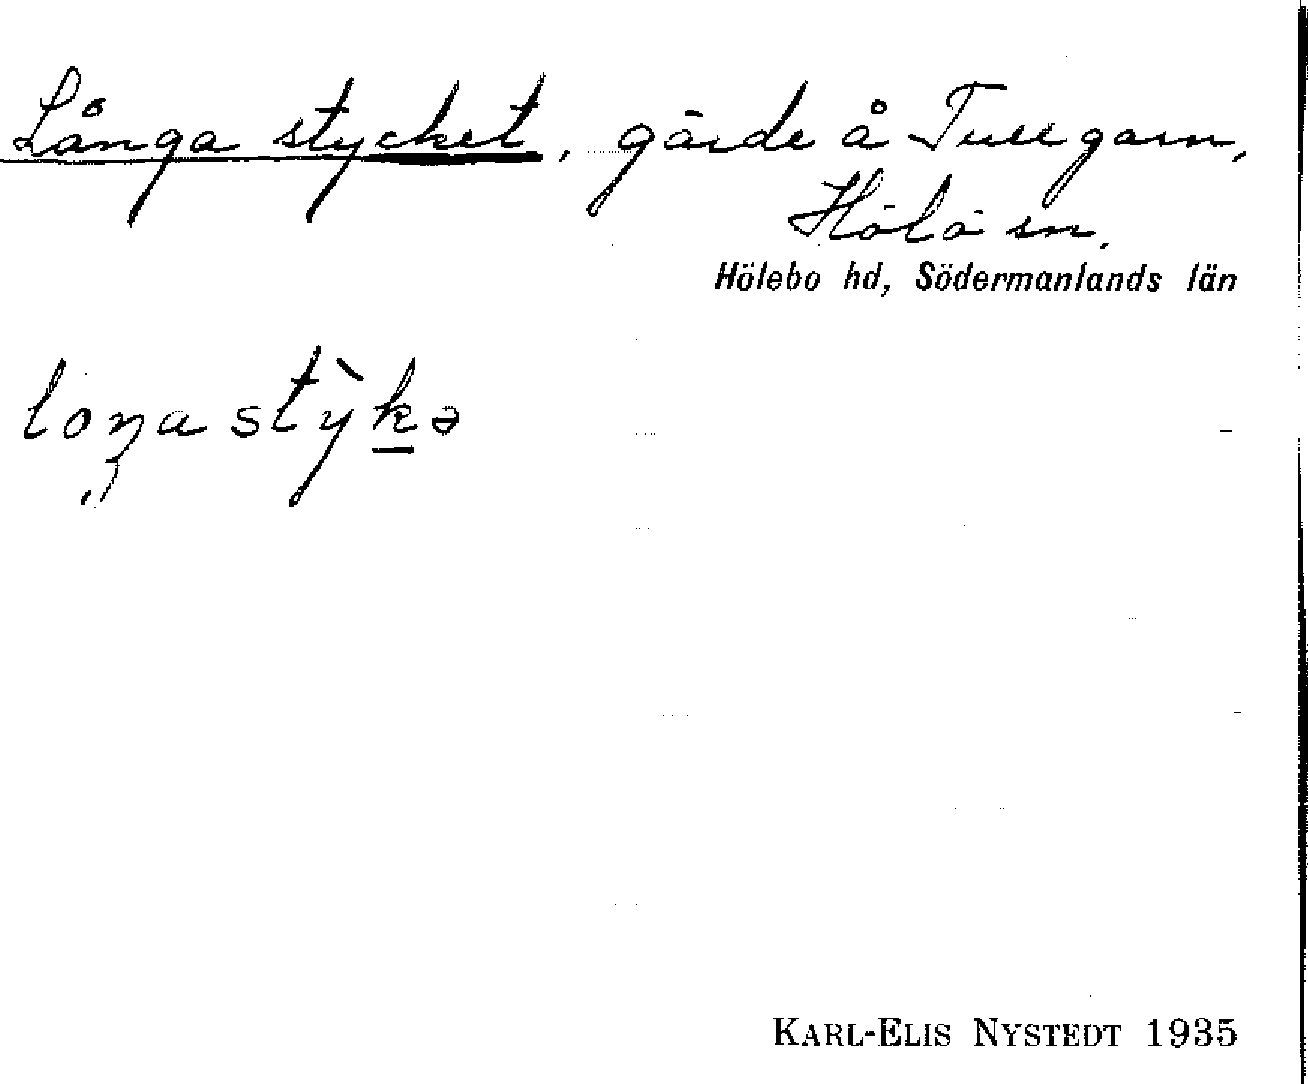 Långa stycket, gärde å Tullgarn,
Hölö sn.
Hölebo hd, Södermanlands län
loŋa stỳkə
KARL-ELIS NYSTEDT 1935